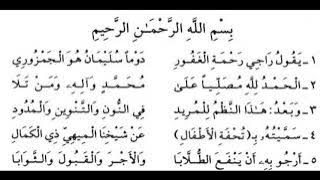 بِسْمِ اللَّهِ الرَّحْمَـٰنِ الرَّحِيمِ
١ـ يَقُولُ رَاجِي رَحْمَةِ الْغَفُورِ دَوْماً سُلَيْمَانُ هُوَ الْجَمْزُورِي
٢ـ الْحَمْدُ لِلَّهِ مُصَلِّياً عَلَىٰ مُحَمَّدٍ وَآلِهِ وَمَنْ تَلَا
٣ـ وَبَعْدُ: هَـٰذَا النَّظْمُ لِلْمُرِيدِ فِي النُّونِ وَالتَّنْوِينِ وَالْمُدُودِ
٤ـ سَمَّيْتُهُ بِـ(تُحْفَةِ الْأَطْفَالِ) عَنْ شَيْخِنَا الْمِيهِيِّ ذِي الْكَمَالِ
٥ـ أَرْجُو بِهِ أَنْ يَنْفَعَ الطُّلَّابَا وَالْأَجْرَ وَالْقَبُولَ وَالثَّوَابَا